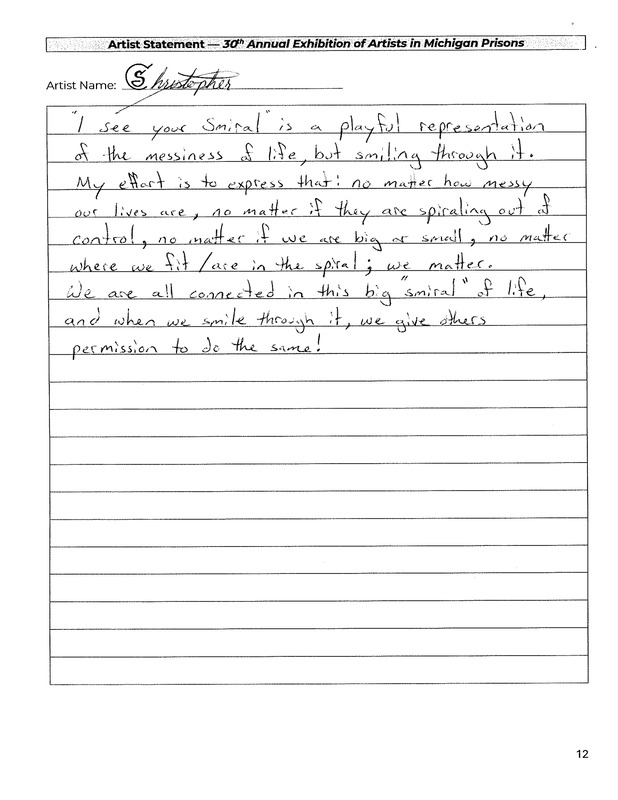 Artist Statement — 30th Annual Exhibition of Artists in Michigan Prisons
Artist Name: Christopher
"I see your Smiral" is a playful representation
of the messiness of life, but smiling through it.
My effort is to express that: no matter how messy
our lives are, no matter if they are spiraling out of
control, no matter if we are big or small, no matter
where we fit/are in the spiral; we matter.
We are all connected in this big "smiral" of life,
and when we smile through it, we give others
permission to do the same!
12